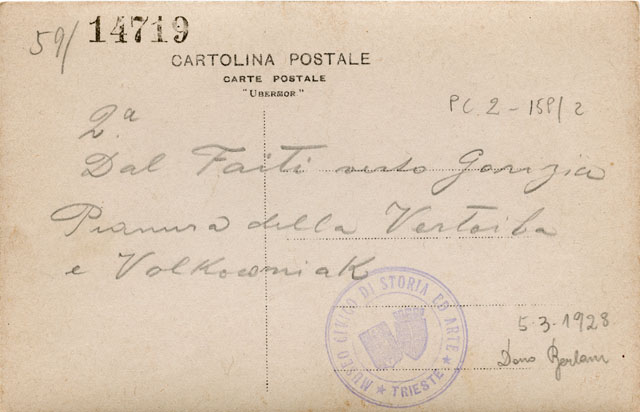 59/ 14719
CARTOLINA POSTALE
CARTE POSTALE
"UBERMOR"
PC. 2 - 158/2
2.a
Dal Faiti verso Gorizia
Pianura della Vertoiba
e Volkowniak
MUSEO CIVICO DI STORIA ED ARTE
★ TRIESTE ★
5-3-1928
Dono